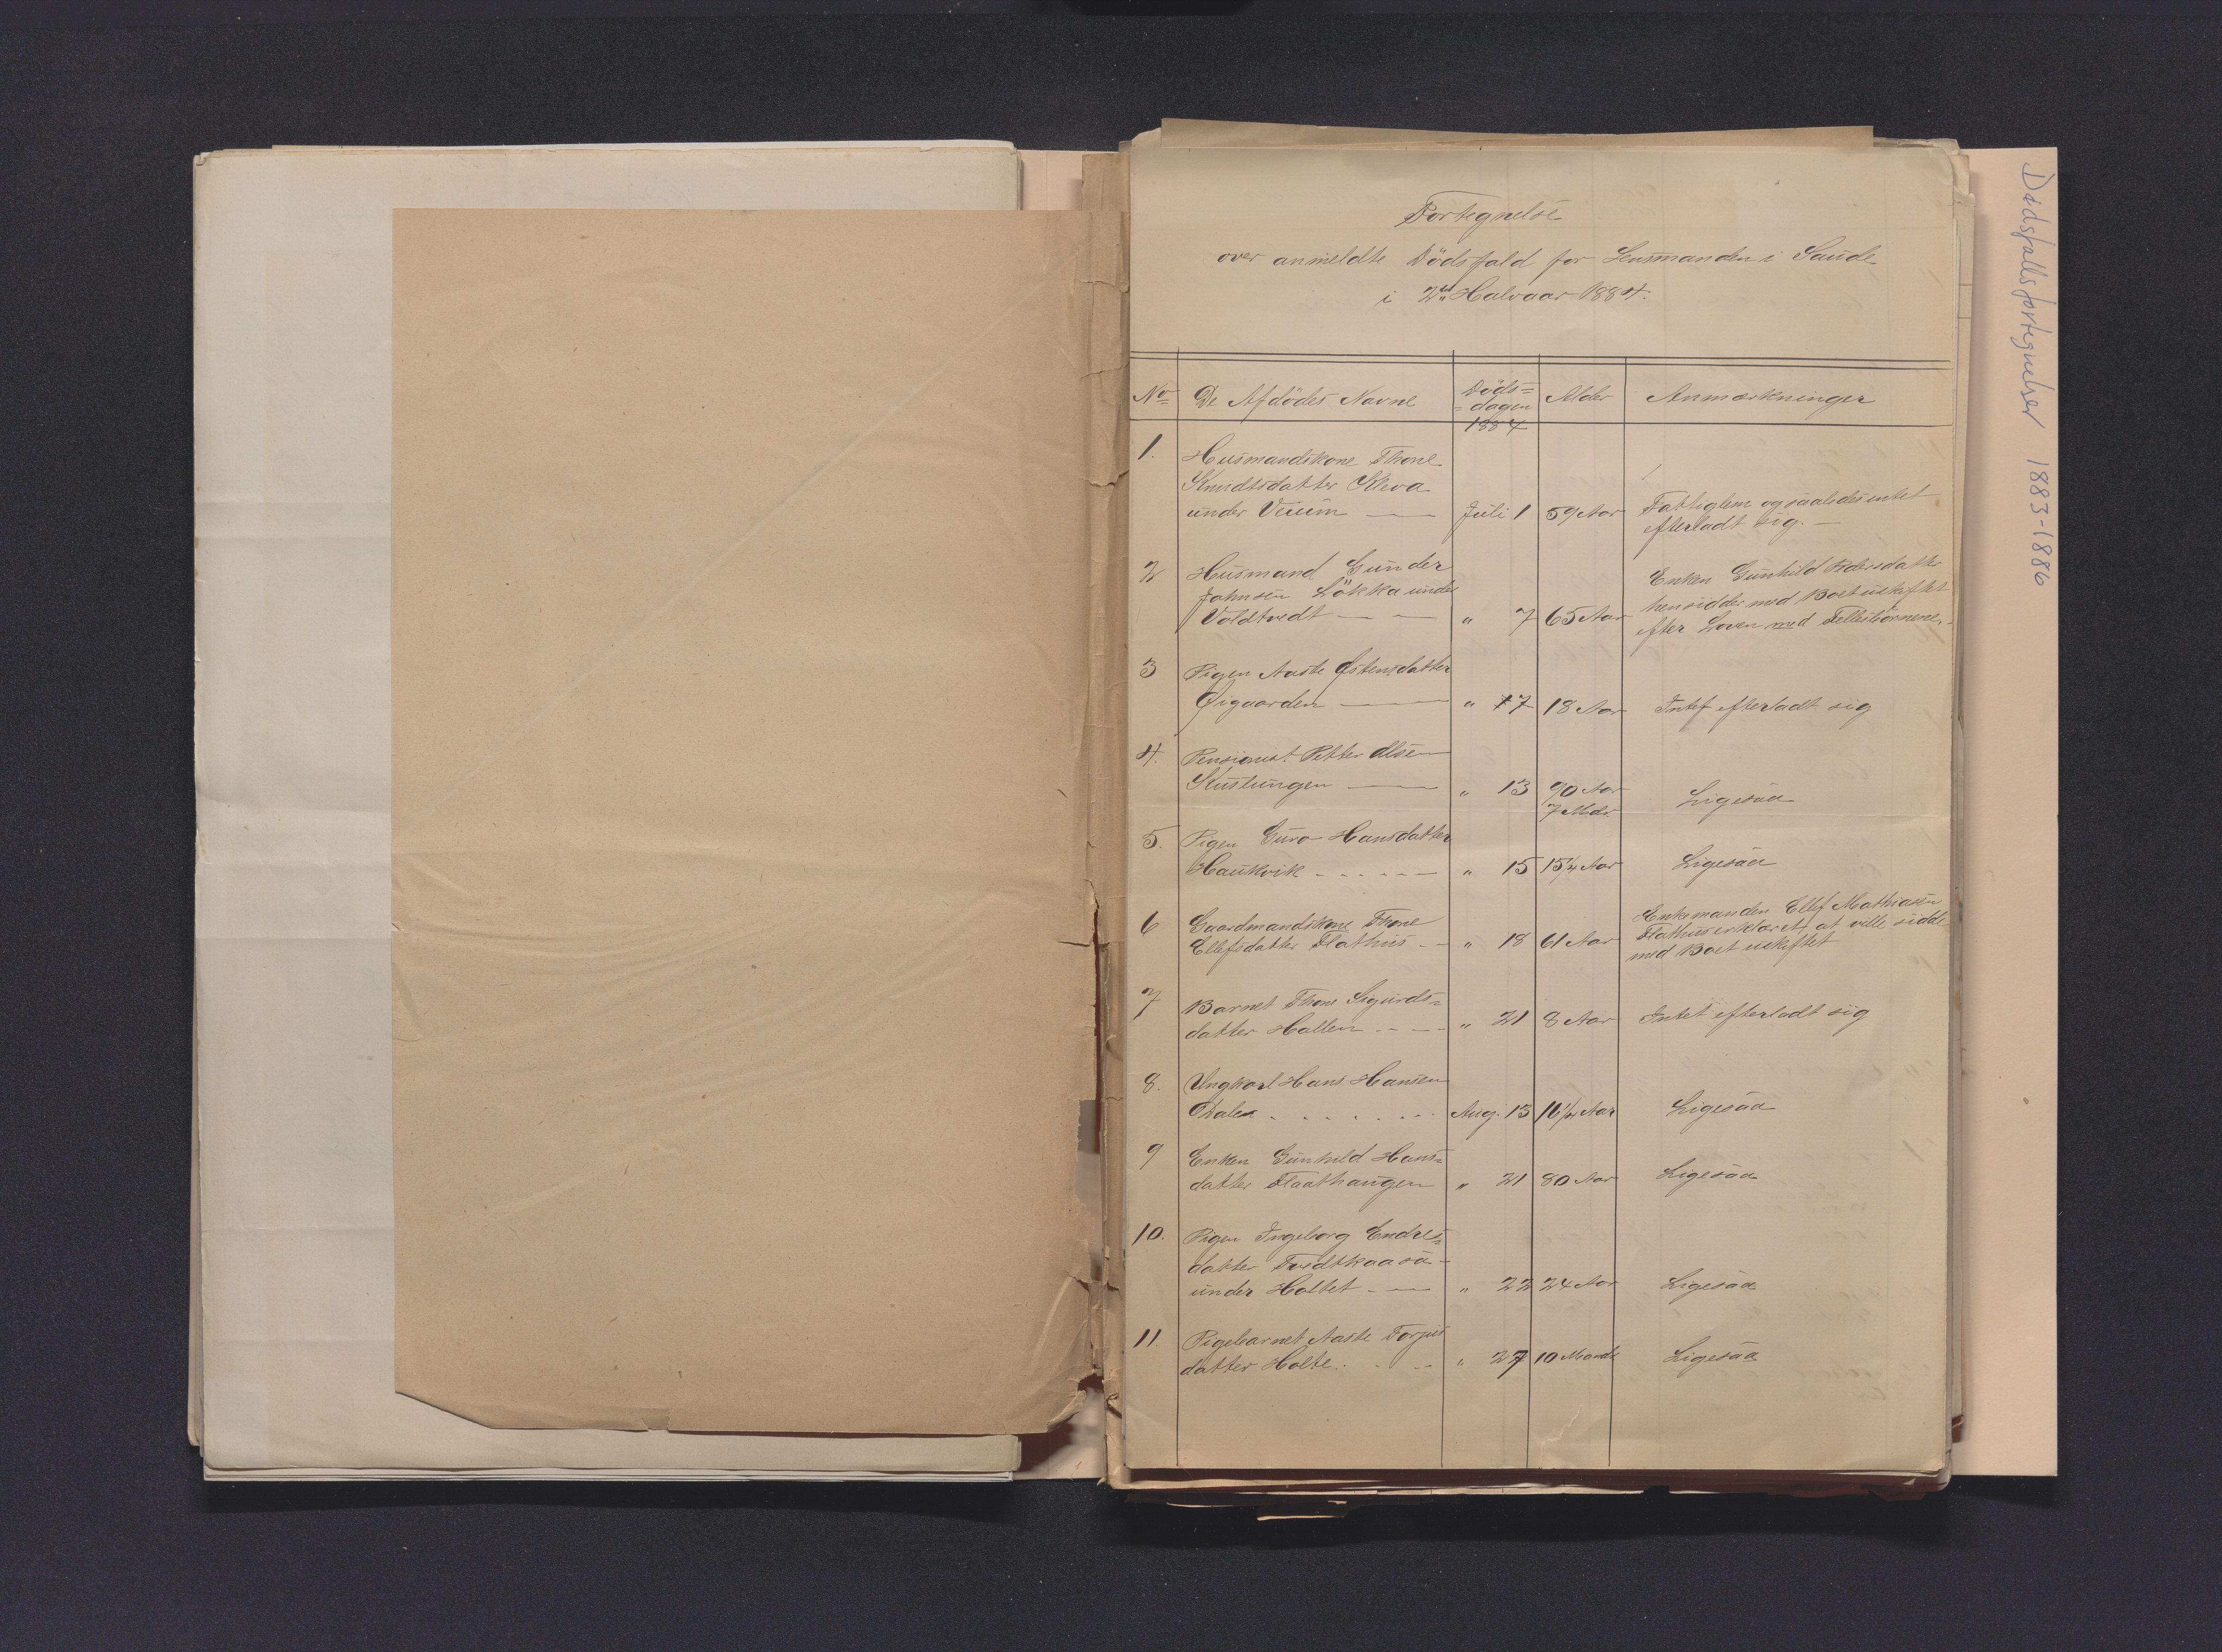 Fortegnelse
over anmeldte Dödsfald for Lensmanden i Saude
i 2det Halvaar 1884.
No De Afdödes Navne Döds= =dagen Alder Anmærkninger
1884
1. Husmandskone Thone
Knudtsdatter Kleva
under Veum — Juli 1 59 Aar Fattiglem og saaledes intet
efterladt sig. —
2 Husmand Gunder
Johnsen Lökka under
Voldtvedt — — " 7 65 Aar Enken Gunhild Pedersdatter
hensidder med Boet uskiftet
efter Loven med Fellesbörnene.
3 Pigen Aaste Østensdatter
Øigaarden — " 17 18 Aar Intet efterladt sig
4. Pensionist Petter Olsen
Kustungen — " 13 90 Aar Ligesaa
7 Mdr.
5. Pigen Guro Hansdatter
Haukvik - - - - - " 15 15¼ Aar Ligesaa
6 Gaardmandskone Thone
Ellefsdatter Flathus - - " 18 61 Aar Enkemanden Ellef Mathiasen
Flathus erklæret, at ville sidde
med Boet uskiftet
7 Barnet Thone Sigurds=
datter Hollen - - — " 21 8 Aar Intet efterladt sig
8. Ungkarl Hans Hansen
Dalen . . . . . Aug. 13 16¼ Aar Ligesaa
9 Enken Gunhild Hans=
datter Flaathaugen " 21 80 Aar Ligesaa
10. Pigen Ingeborg Endres=
datter Tvedtkaasa -
under Holtet - — " 22 24 Aar Ligesaa
11. Pigebarnet Aaste Torjus
datter Holte . . - - " 27 10 Maander Ligesaa
Dødsfallsfortegnelser 1883-1886